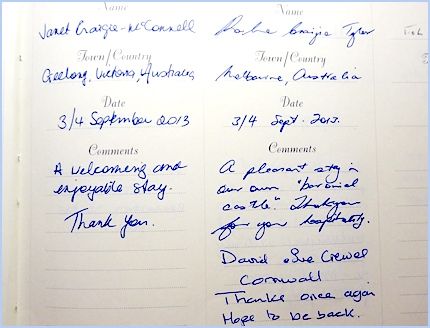 Name
Janet Craigie-McConnell
Town/Country
Geelong, Victoria, Australia
Date
3/4 September 2013
Comments
A welcoming and
enjoyable stay.
Thank you.
Name
Craigie Tyler
Town/Country
Melbourne, Australia
Date
3/4 Sept. 2013.
Comments
A pleasant stay in
our own "baronial
castle". Thankyou
for your hospitality.
David & Sue Crewel
Cornwall
Thanks once again
Hope to be back.